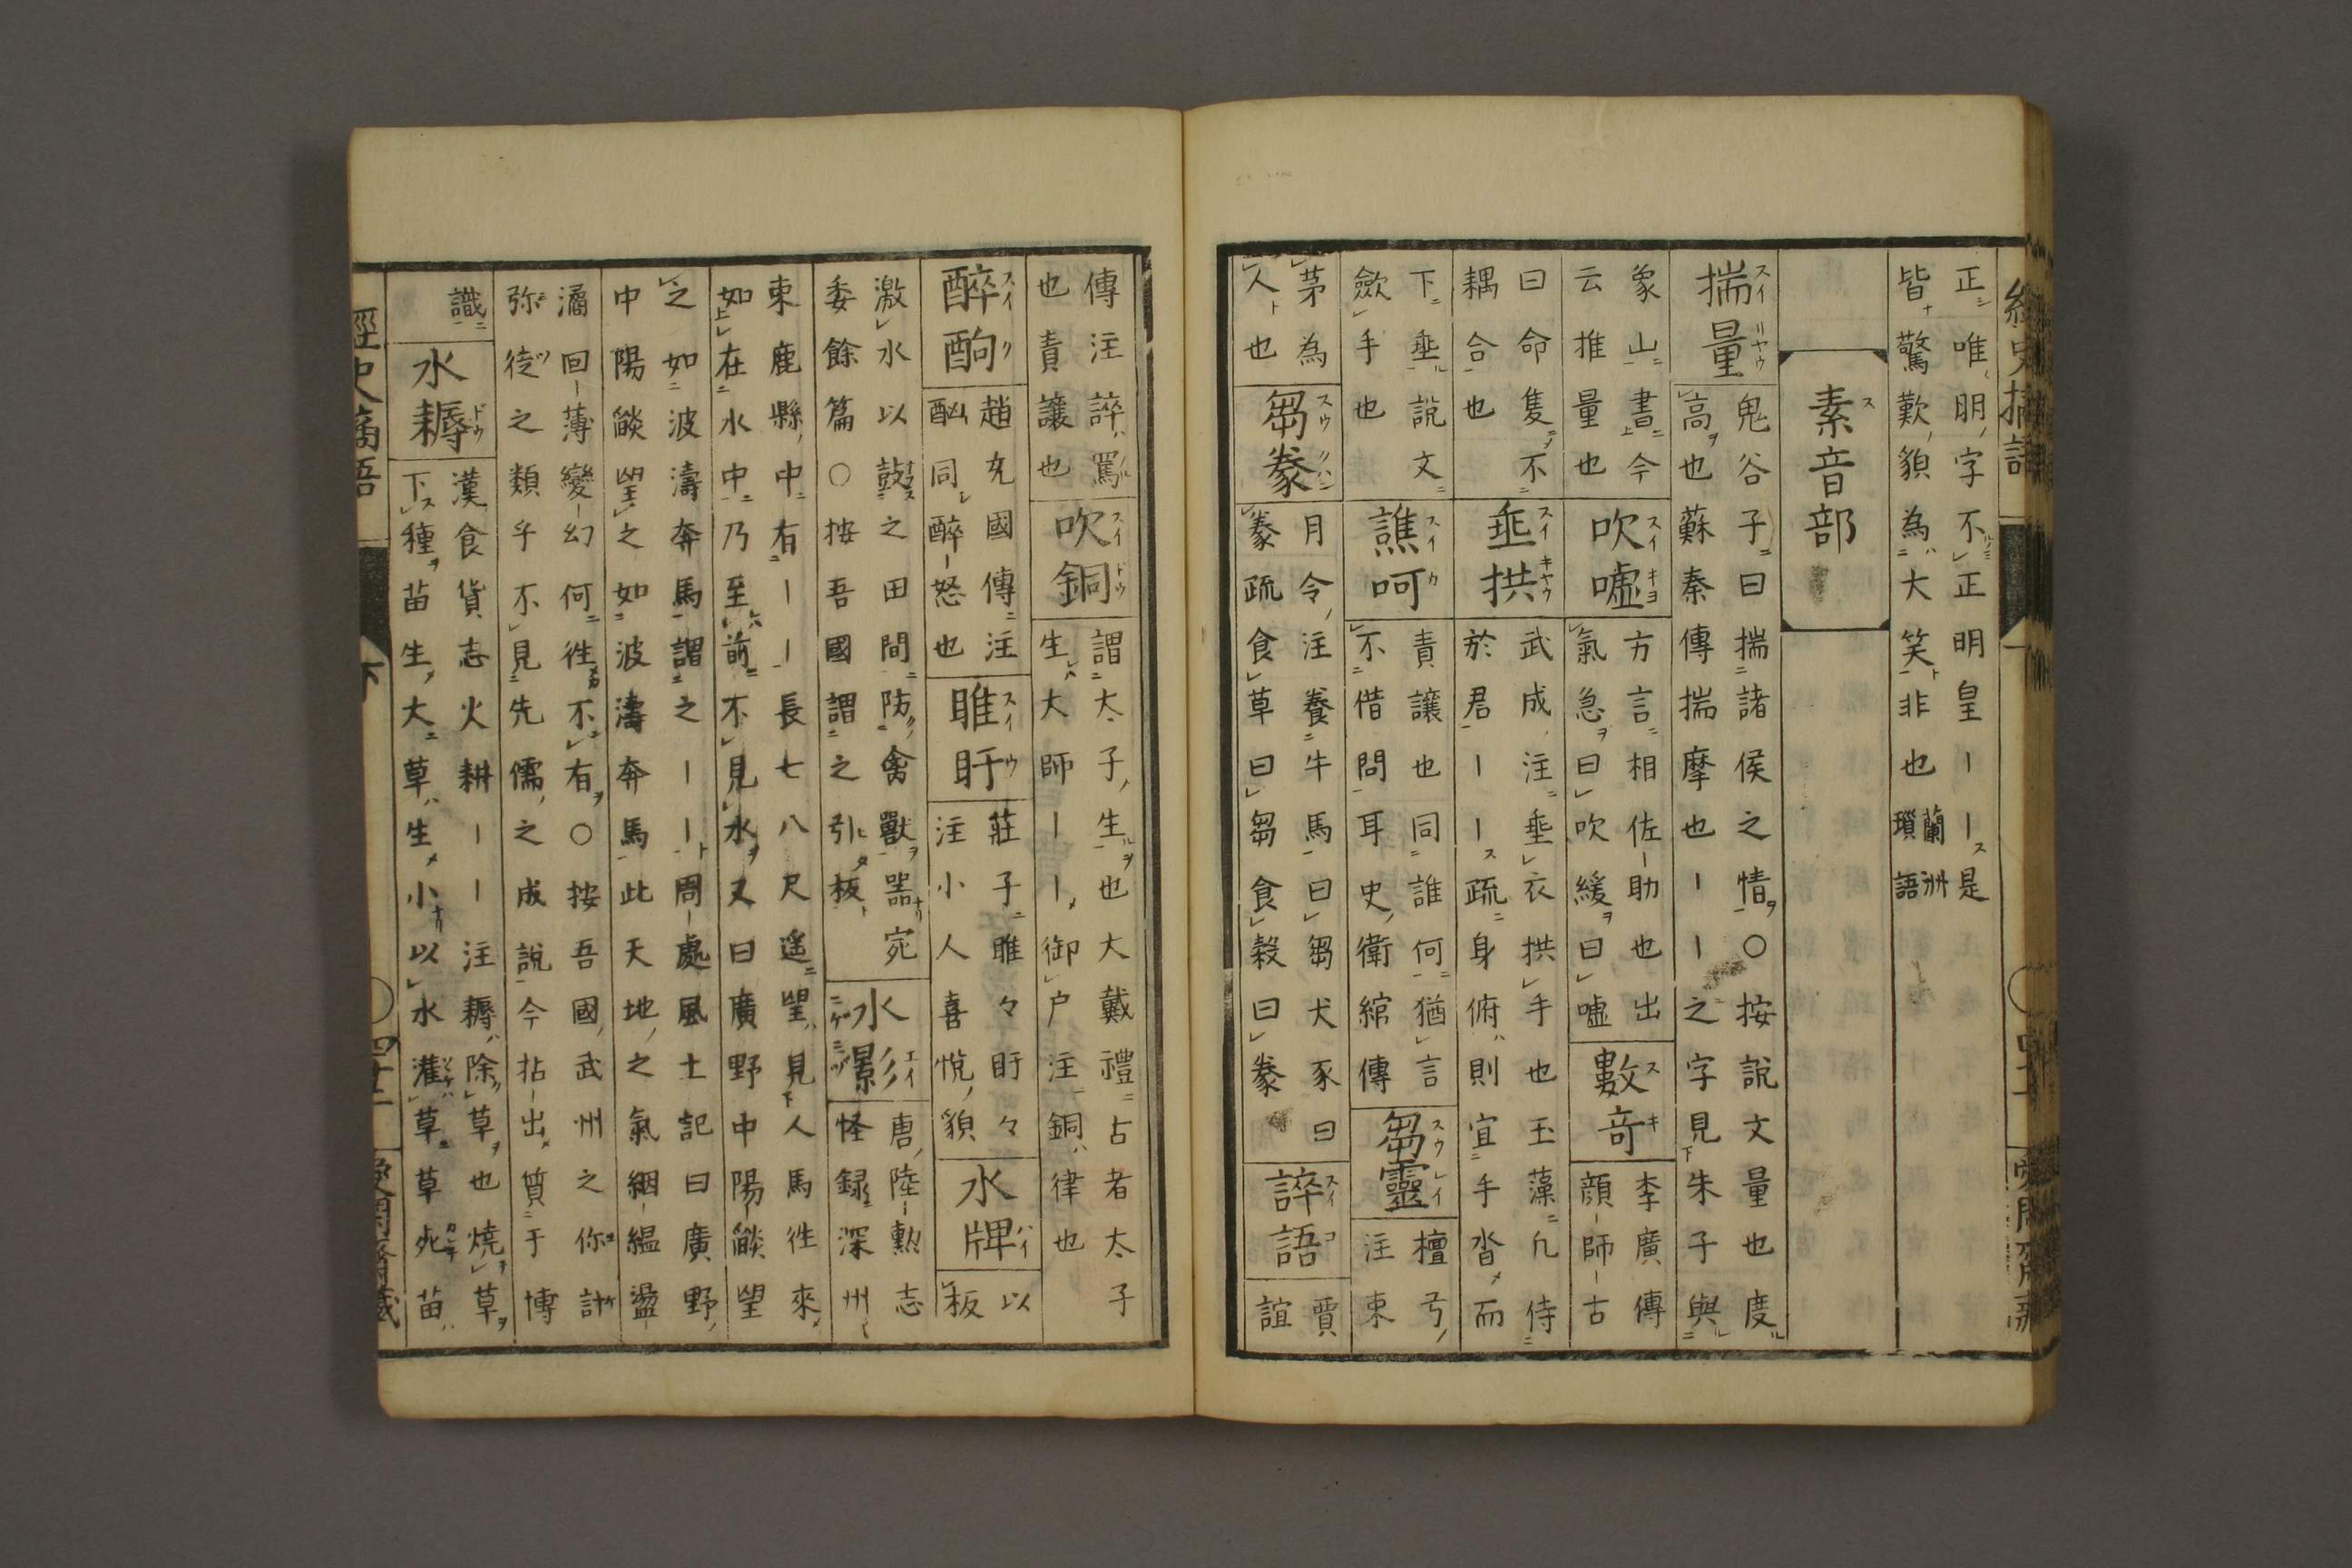 正唯明字不正明皇｜｜是
皆驚歎貌為大笑非也 蘭洲
瑣語
素音部
揣量
鬼谷子曰揣諸侯之情〇按說文量也度
高也蘇秦傳揣摩也｜｜之字見朱子與
象山書今
云推量也
吹嘘
方言相佐助也出
氣急曰吹緩曰嘘
數奇
李廣傳
顔師古
曰命隻不
耦合也
垂拱
武成注垂衣拱手也玉藻凡侍
於君｜｜疏身俯則宜手沓而
下垂說文
斂手也
譙呵
責讓也同誰何猶言
不借問耳史衛綰傳
芻靈
檀弓
注束
茅為
人也
芻豢
月令注養牛馬曰芻犬豕曰
豢疏食草曰芻食穀曰豢
誶語
賈
誼
傳注誶罵
也責讓也
吹銅
謂太子生也大戴禮古者太子
生大師｜｜御户注銅律也
醉酗
趙充國傳注
酗同醉怒也
睢盱
莊子睢々盱々
注小人喜悅貌
水牌
以
板
激水以鼓之田間防禽獸噐宛
委餘篇〇按吾國謂之引板
水影
唐陸勲志
怪録深州
束鹿縣中有｜｜長七八尺遥望見人馬徃來
如在水中乃至前不見水又曰廣野中陽燄望
之如波濤奔馬謂之｜｜周處風土記曰廣野
中陽燄望之如波濤奔馬此天地之氣絪緼盪
潏回薄變幻何徃不有〇按吾國武州之你計
弥徒之類乎不見先儒之成說今拈出質于博
識
水耨
漢食貨志火耕｜｜注耨除草也燒草
下種苗生大草生小以水灌草草死苗
經史摘語
下
四十二